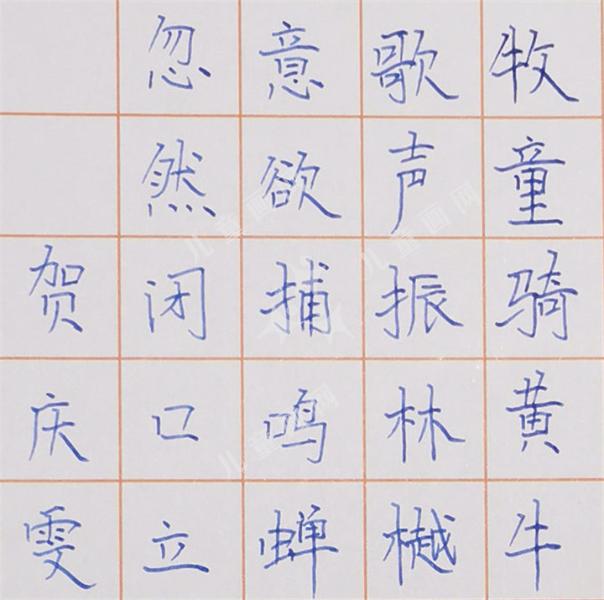 牧童骑黄牛
歌声振林樾
意欲捕鸣蝉
忽然闭口立
贺庆雯
儿童画网